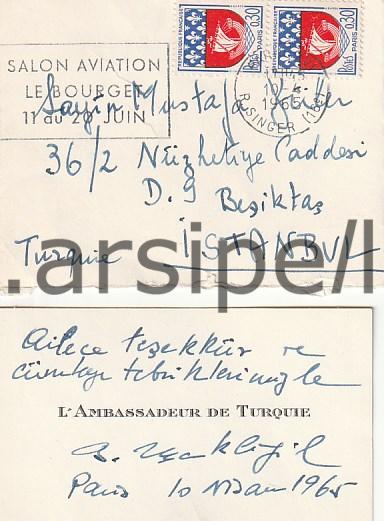 REPUBLIQUE FRANÇAISE
POSTES
0.30
PARIS
REPUBLIQUE FRANÇAISE
POSTES
0.30
PARIS
SALON AVIATION
LE BOURGET
11 au 20 JUIN
10-4
1965
R. SINGER (16e)
Sayin Mustafa
36/2 Nüzhetiye Caddesi
D. 9 Beşiktaş
Turquie İSTANBUL
.arsipe/l
Ailece teşekkür ve
tebriklerimizle
L'AMBASSADEUR DE TURQUIE
Paris 10 Nisan 1965